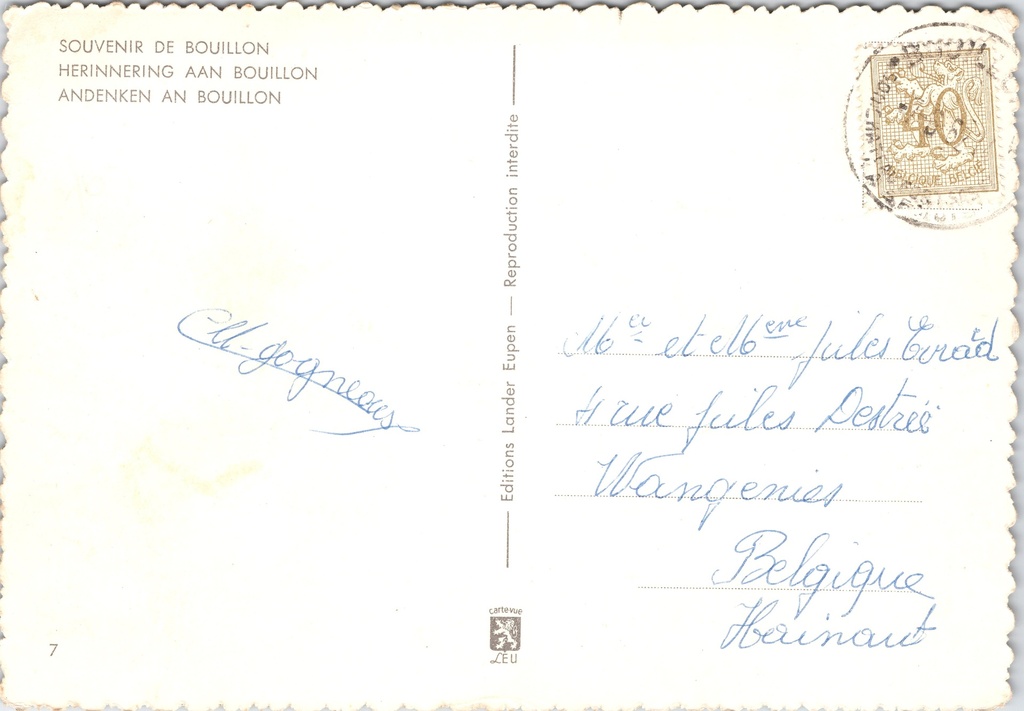 SOUVENIR DE BOUILLON
HERINNERING AAN BOUILLON
ANDENKEN AN BOUILLON
Editions Lander Eupen — Reproduction interdite
40
BELGIQUE-BELGIE
Mr et Mme Jules Evrard
4 rue Jules Destrée
Wangenies
Belgique
Hainaut
cartevue
LEU
7